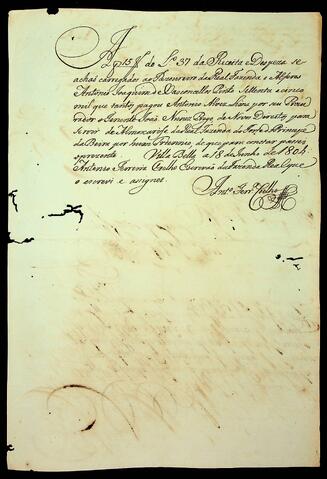 A f 15 do L.º 37 da Receita e Despeza se
achão carregados ao Thezoureiro da Real Fazenda o Alferes
Antonio Joaquim de Vasconcellos Pinto Settenta e cinco
mil que tantos pagou Antonio Alves Lima por seu Procu
rador o Tenente José Nunes de Novos Direitos para
servir de Almoxarife da Real Fazenda do Forte do Principe
da Beira por hum Triennio, de que para constar passei
o prezente. Villa Bella a 18 de Junho de 1804.
Antonio Ferreira Coelho Escrivão da Fazenda Real que
o escrevi e assignei.
Ant.º Ferr.ª Coelho